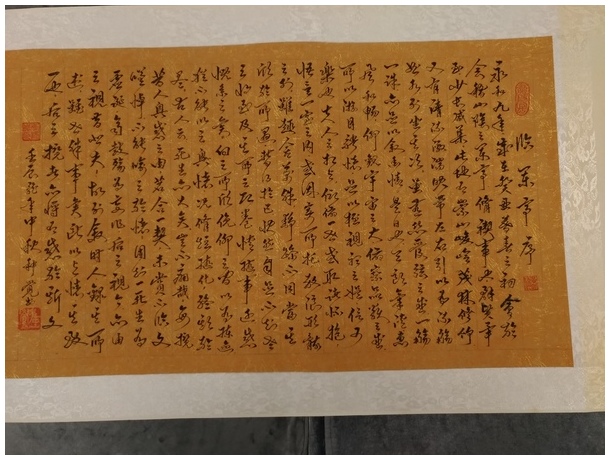 臨蘭亭序
永和九年歲在癸丑暮春之初會於
會稽山陰之蘭亭脩禊事也群賢畢
至少長咸集此地有崇山峻嶺茂林脩竹
又有清流激湍暎帶左右引以為流觴
曲水列坐其次雖無絲竹管弦之盛一觴
一詠亦足以暢敘幽情是日也天朗氣清惠
風和暢仰觀宇宙之大俯察品類之盛
所以遊目騁懷足以極視聽之娛信可
樂也夫人之相與俯仰一世或取諸懷抱
悟言一室之內或因寄所託放浪形骸
之外雖趣舍萬殊靜躁不同當其
欣於所遇暫得於己快然自足不知老
之將至及其所之既惓情隨事遷感
慨係之矣向之所欣俛仰之間以為陳迹
猶不能不以之興懷況脩短隨化終期於
盡古人云死生亦大矣豈不痛哉每攬
昔人興感之由若合一契未嘗不臨文
嗟悼不能喻之於懷固知一死生為
虛誕齊彭殤為妄作後之視今亦由今
之視昔悲夫故列敘時人錄其所
述雖世殊事異所以興懷其致
一也後之攬者亦將有感於斯文
壬辰龍年中秋